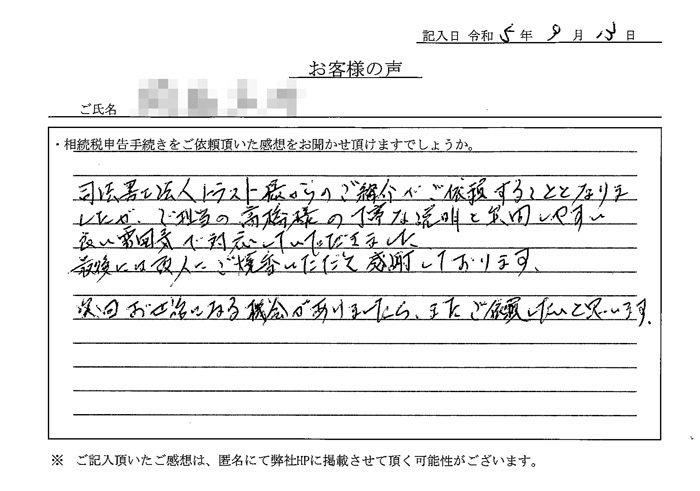 記入日 令和 5 年 9 月 13 日
お客様の声
ご氏名
・相続税申告手続きをご依頼頂いた感想をお聞かせ頂けますでしょうか。
司法書士法人トラスト様からのご紹介でご依頼することとなりま
したが、ご担当の高橋様の丁寧な説明と質問しやすい
良い雰囲気で対応していただきました
最後には故人にご焼香いただき感謝しております。
次回お世話になる機会がありましたら、またご依頼したいと思います。
※ ご記入頂いたご感想は、匿名にて弊社HPに掲載させて頂く可能性がございます。